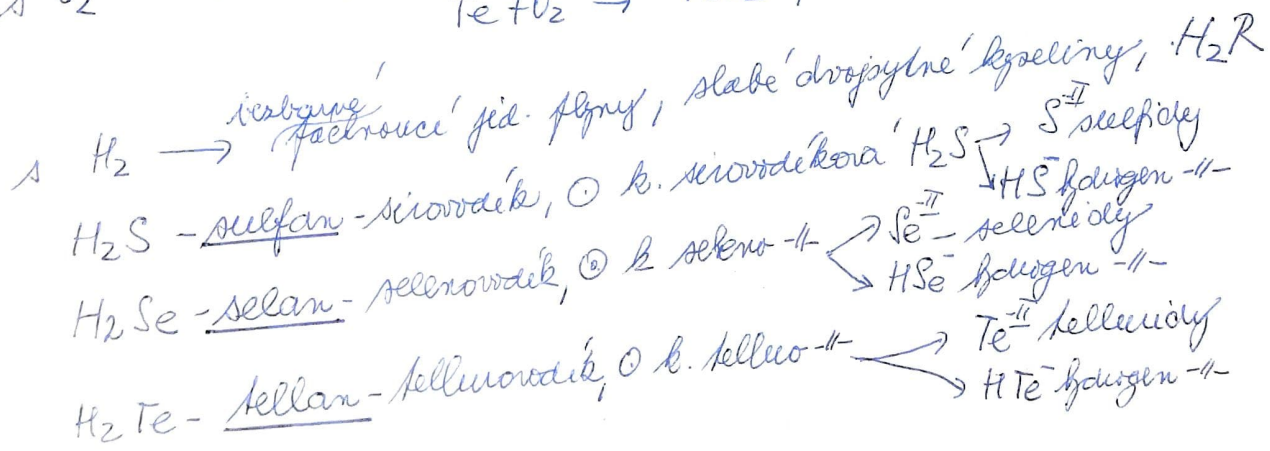 Te + O₂ →
bezbarvé
s H₂ → páchnoucí jed. plyny, slabé dvojsytné kyseliny, H₂R
H₂S - sulfan - sirovodík, ⊙ k. sirovodíková H₂S → S⁻ᴵᴵ sulfidy
HS⁻ hydrogen -||-
H₂Se - selan - selenovodík, ⊙ k seleno -||- → Se⁻ᴵᴵ - selenidy
HSe⁻ hydrogen -||-
H₂Te - tellan - tellurovodík, ⊙ k. telluro -||- → Te⁻ᴵᴵ telluridy
HTe⁻ hydrogen -||-